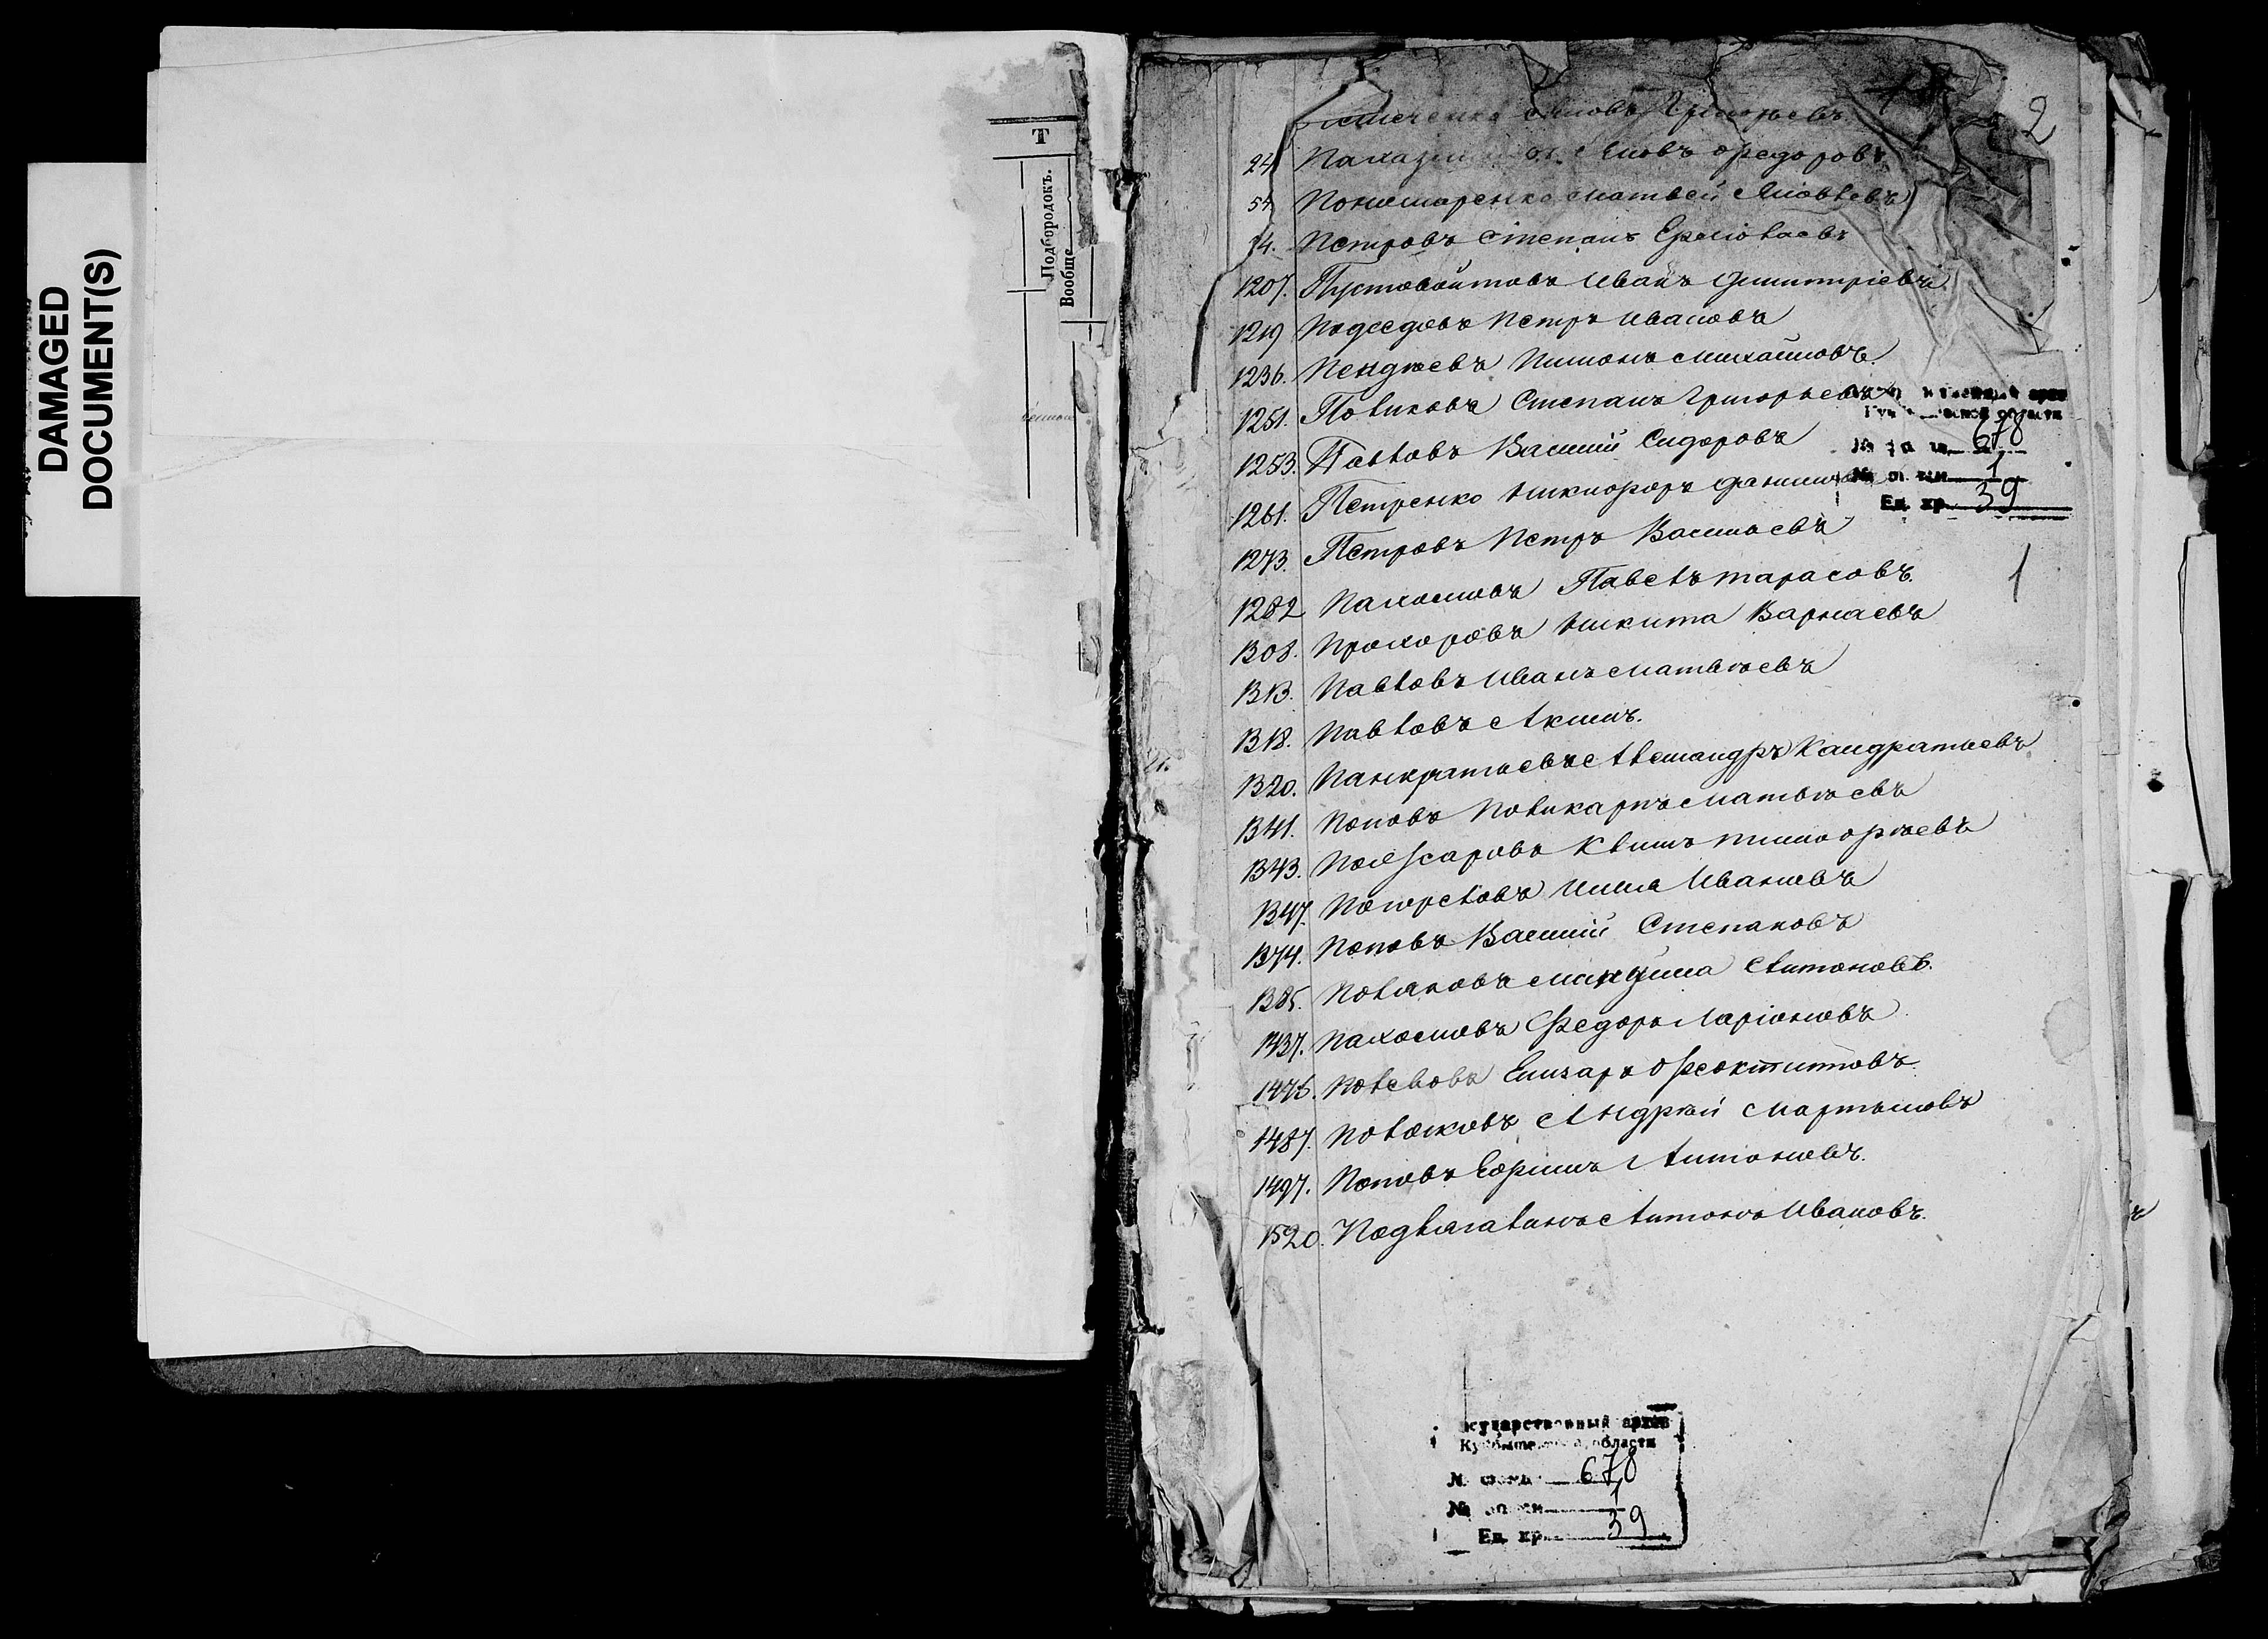 DAMAGED
DOCUMENT(S)
Т
Подбородокъ.
Вообще
2
Яковъ Григорьевъ
24 Яковъ Федоровъ
54 Пономаренко Матвей Яковлевъ
4. Петровъ Степанъ Ермолаевъ
1207. Пустовойтовъ Иванъ Дмитріевъ
1219 Подседовъ Петръ Ивановъ
1236. Пендюевъ Пименъ Михайловъ
1251. Поликовъ Степанъ Григорьевъ
1253. Павловъ Василий Сидоровъ
1261. Петренко Никифоръ
1273. Петровъ Петръ Васильевъ
1282 Пахомовъ Павелъ Тарасовъ.
1308. Прохоровъ Никита Варнаевъ
1313. Павловъ Иванъ Матвѣевъ
1318. Павловъ Акимъ.
1320. Панкратьевъ Александръ Кандратьевъ
1341. Поповъ Поликарпъ Матвѣевъ
1343. Климъ Тимофѣевъ
1347. Погорѣловъ Илья Ивановъ
1374. Поповъ Василий Степановъ
1385. Поляковъ Антоновъ.
1437. Пахомовъ Федоръ Ларіоновъ
1476. Поленовъ Елизаръ Феоктитовъ
1487. Андрей Мартыновъ
1497. Поповъ Ефимъ Антоновъ.
1520. Антонъ Ивановъ.
678
1
Ед. хр. 39
1
сударственный архив
области
№ 678
№ 1
Ед. хр. 39